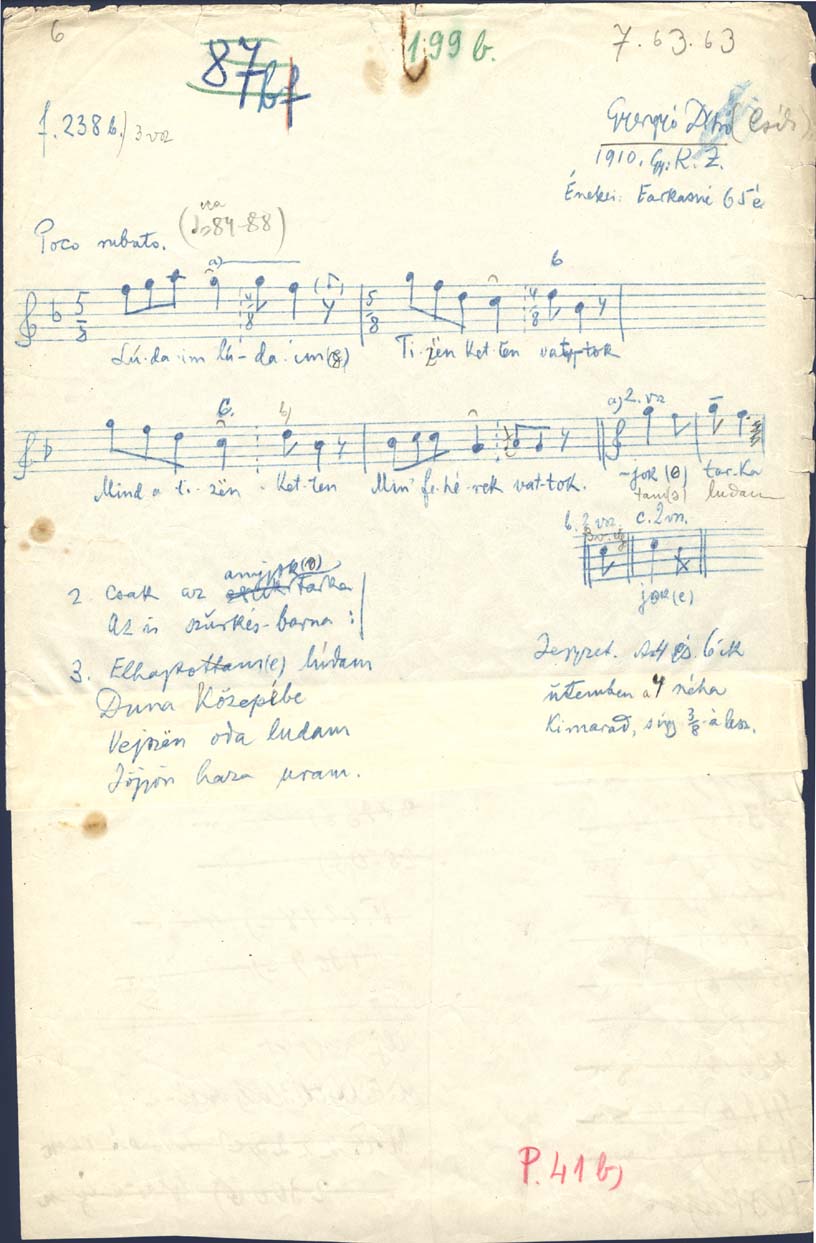 6
87 bf
199 b.
7.63.63
f. 238 b.) 3 vsz
Gyergyó (Csík)
1910. Gy. K. Z.
Énekei: Farkasné 65 é
Poco rubato. (♩=84-88)
a)
6
5 8 4 8 5 8 4 8
Lú-da-im lú-da-im(ë) Ti-zën ket-ten vaty-tok
6. b) a) 2. vsz
Mind a ti-zën-ket-ten Min' fe-hé-rek vat-tok. -jok (ë) tar-ka
tam(ë) ludam
b. 2 vsz. c. 2 vsz.
jok(ë)
2. Csak az annyjok(ë) tarka
Az is szürkés-barna :|
3. Elhajtottam(e) lúdam
Duna közepibe
Vejszën oda ludam
Jöjjön haza uram.
Jegyzet. A 4 és 6ik
ütemben a 𝄾 néha
kimarad, s így 3/8-á lesz.
P. 41 b)